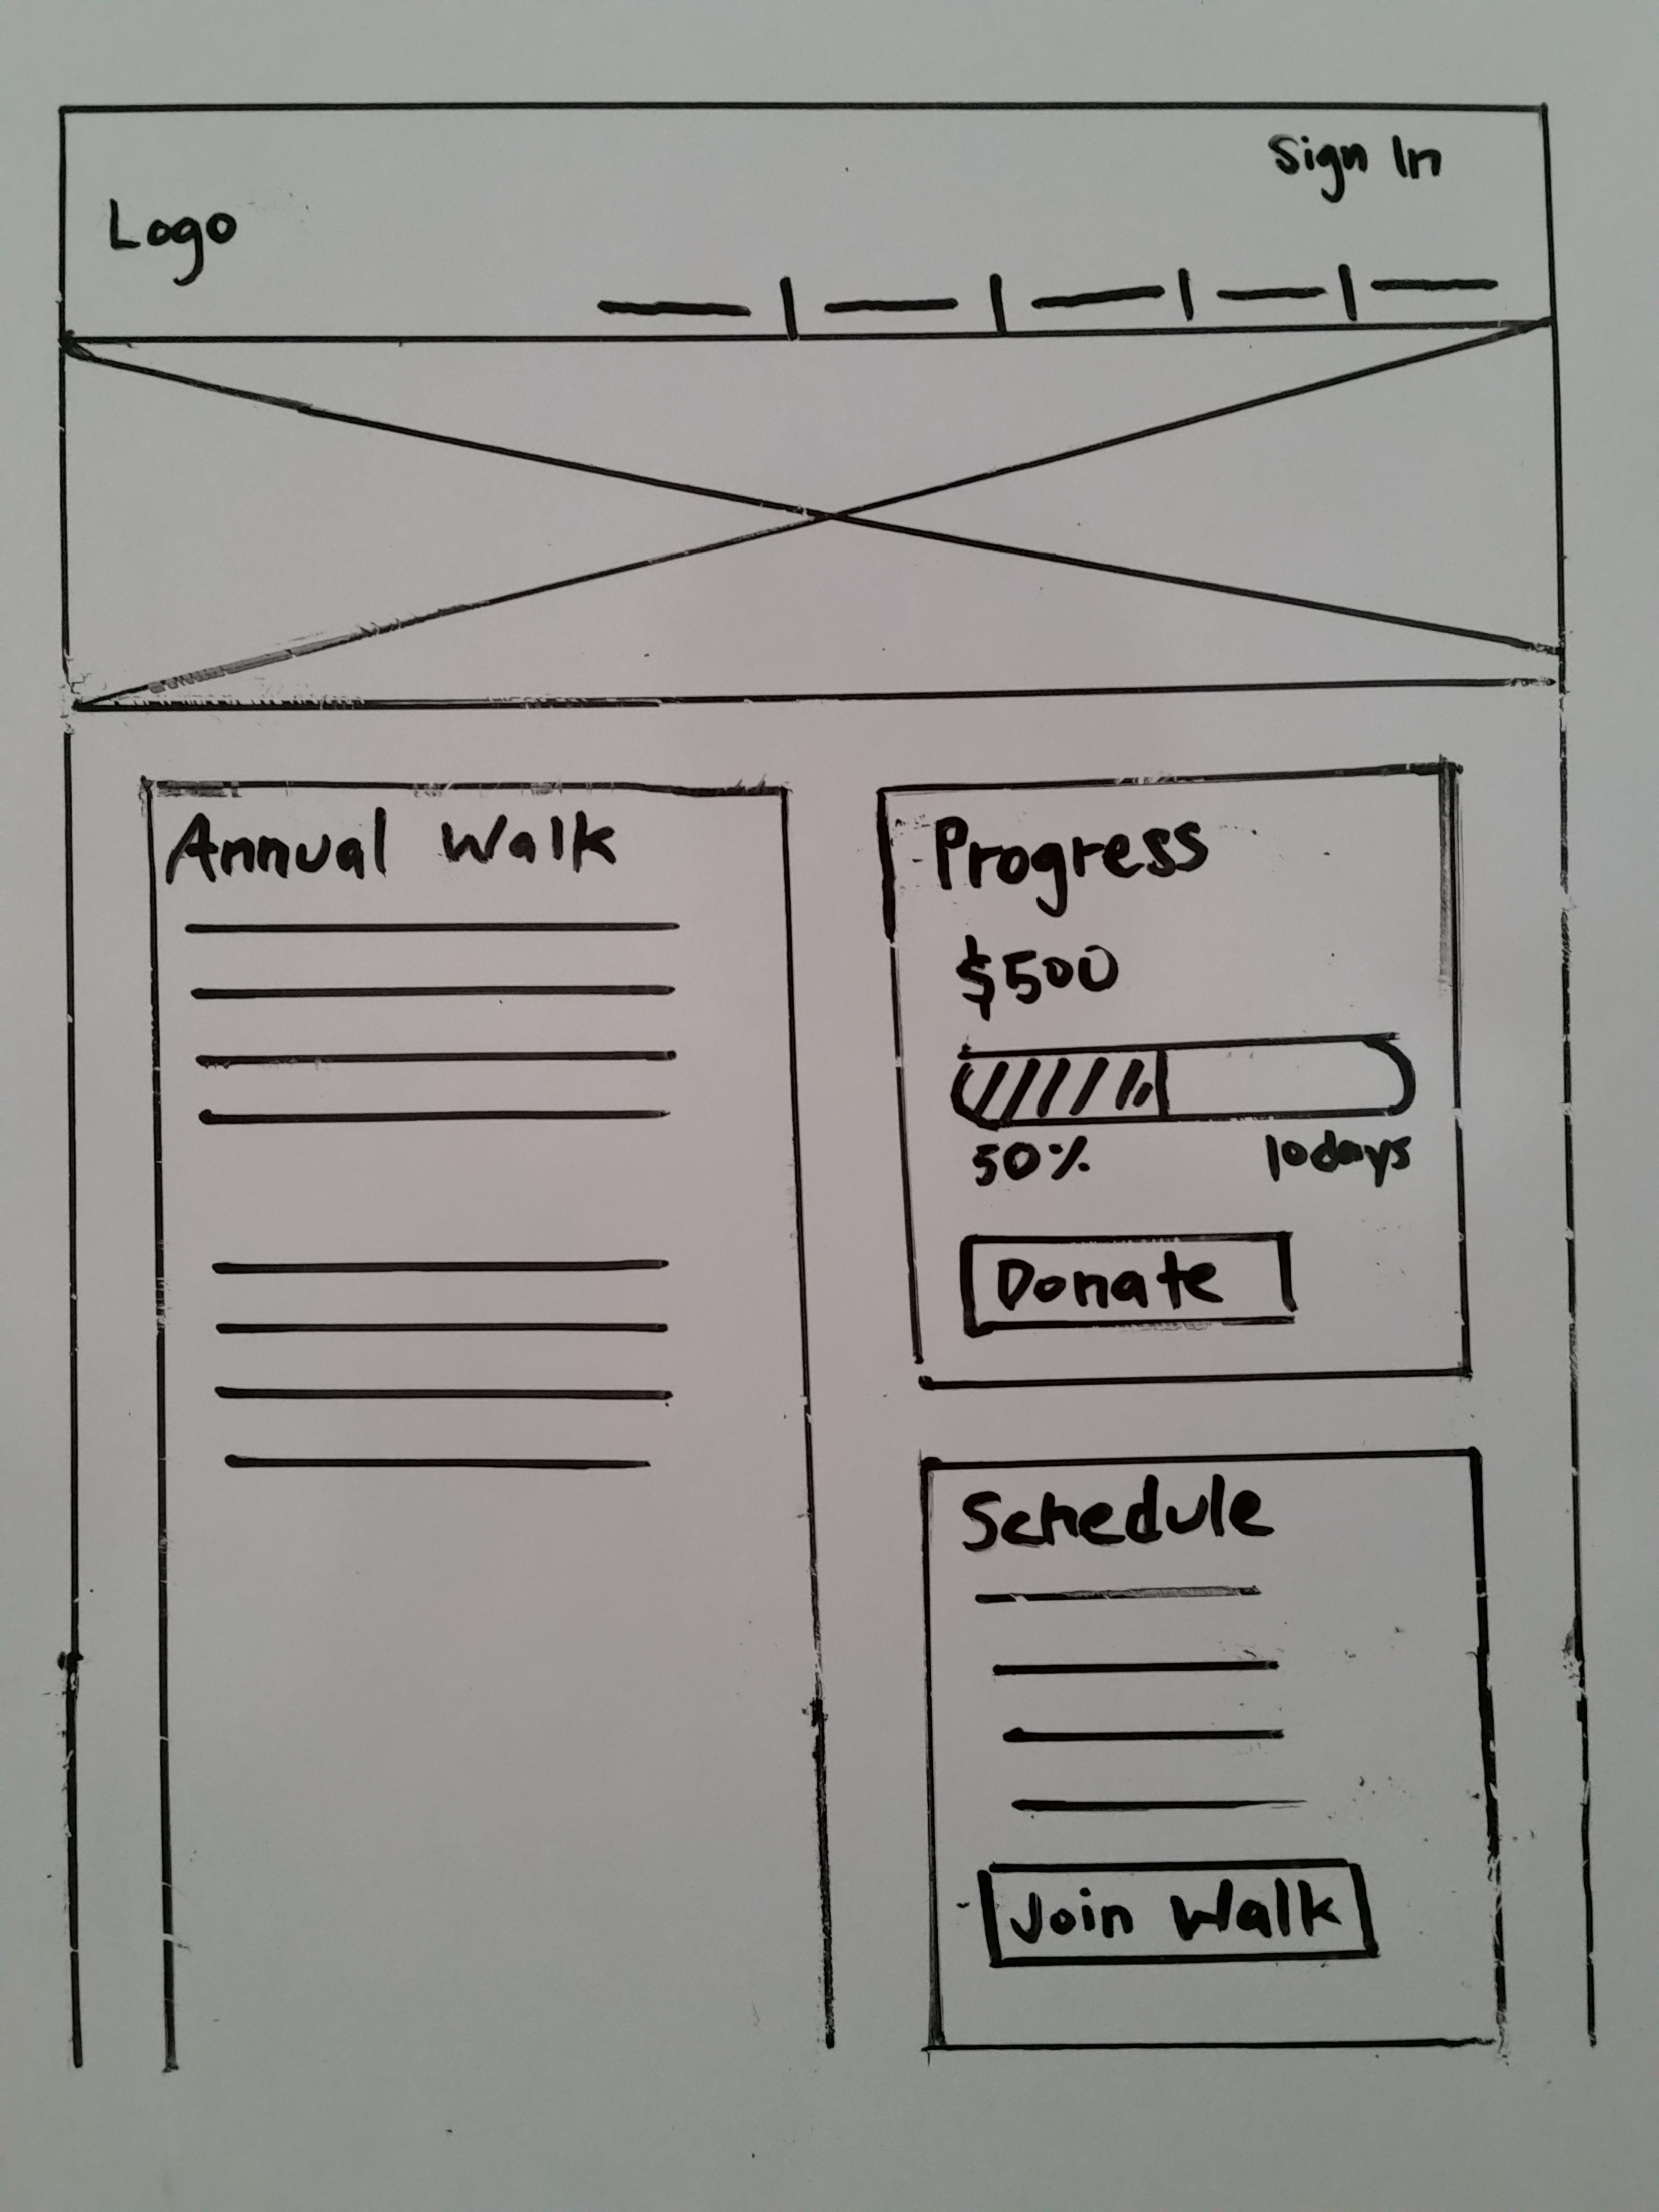 Sign In
Logo
Annual Walk
Progress
$500
50% 10days
Donate
Schedule
Join Walk